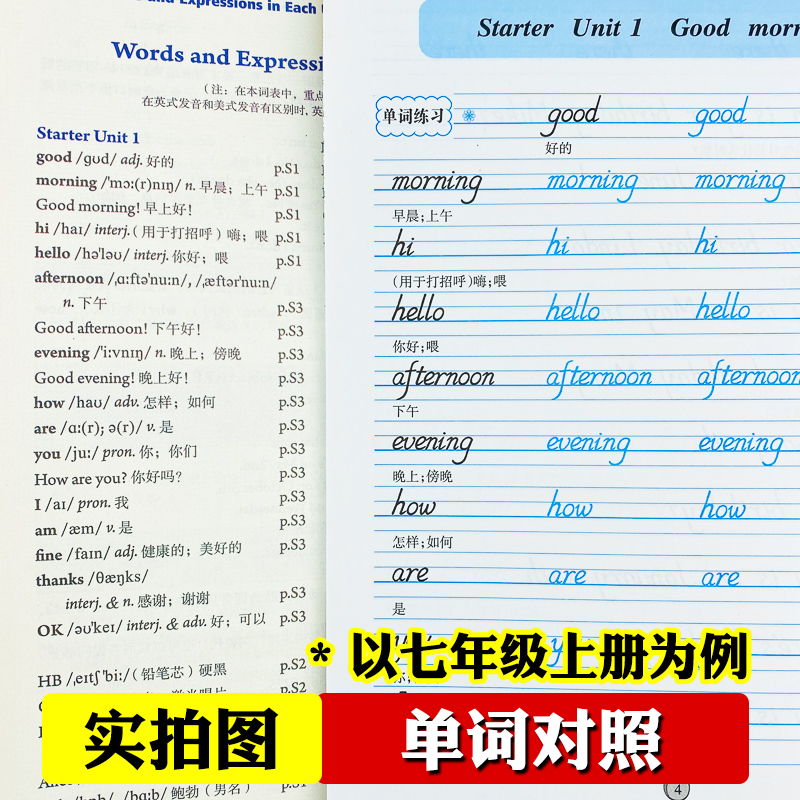 and Expressions in Each
Words and Expressi
(注：在本词表中，重点
在英式发音和美式发音有区别时, 英
Starter Unit 1
good /ɡʊd/ adj. 好的 p.S1
morning /'mɔː(r)nɪŋ/ n. 早晨；上午 p.S1
Good morning! 早上好! p.S1
hi /haɪ/ interj. (用于打招呼) 嗨；喂 p.S1
hello /hə'ləʊ/ interj. 你好；喂 p.S1
afternoon /ˌɑːftə'nuːn/, /ˌæftər'nuːn/
n. 下午 p.S3
Good afternoon! 下午好! p.S3
evening /'iːvnɪŋ/ n. 晚上；傍晚 p.S3
Good evening! 晚上好! p.S3
how /haʊ/ adv. 怎样；如何 p.S3
are /ɑː(r); ə(r)/ v. 是 p.S3
you /juː/ pron. 你；你们 p.S3
How are you? 你好吗? p.S3
I /aɪ/ pron. 我 p.S3
am /æm/ v. 是 p.S3
fine /faɪn/ adj. 健康的；美好的 p.S3
thanks /θæŋks/
interj. & n. 感谢；谢谢 p.S3
OK /əʊ'keɪ/ interj. & adv. 好；可以 p.S3
HB /ˌeɪtʃ 'biː/ (铅笔芯) 硬黑 p.S2
p.S2
/bɑːb/ 鲍勃 (男名) p.S1
Starter Unit 1 Good morn
单词练习 good good
好的
morning morning morning
早晨;上午
hi hi hi
(用于打招呼)嗨;喂
hello hello hello
你好;喂
afternoon afternoon afternoon
下午
evening evening evening
晚上;傍晚
how how how
怎样;如何
are are are
是
* 以七年级上册为例
实拍图 单词对照
4